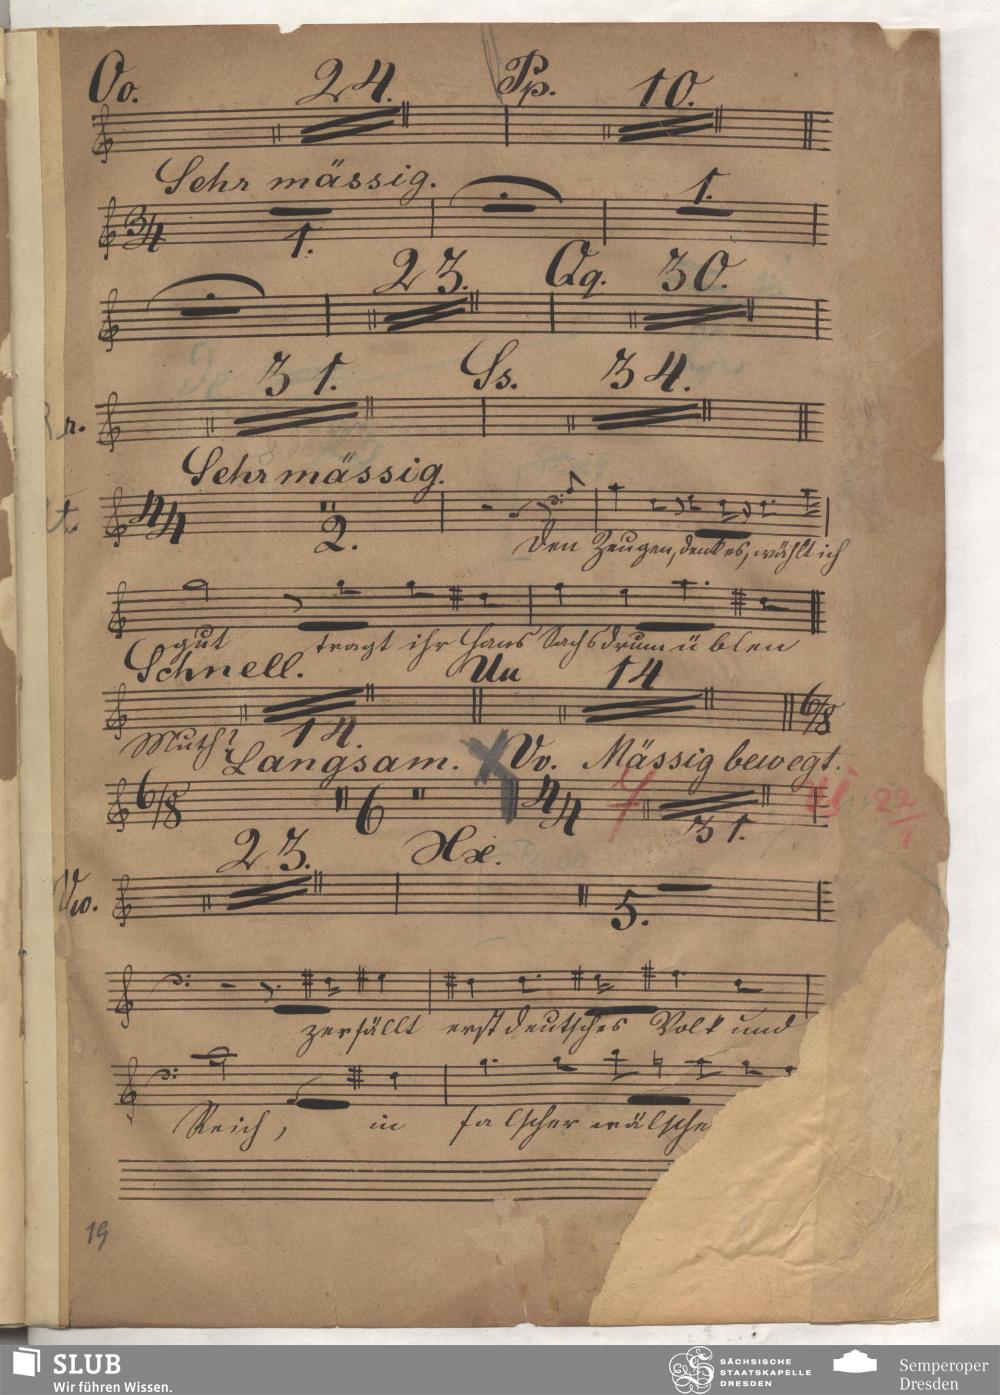 Oo. 24. Pp. 10.
Sehr mässig.
3/4 1. 1.
23. Qq. 30.
31. Ss. 34.
Rr.
Sehr mässig.
4/4 2.
Tt.
Den Zeugen, denk es, wählt ich
gut tragt ihr Hans Sachs drum üblen
Schnell. Uu 14
6/8
Muth? 14.
Langsam. Vv. Mässig bewegt.
6/8 6 4/4 31. 22/
23. Xx.
Ww. 5.
zerfällt erst deutsches Volk und
Reich, in falscher wälsche
19
SLUB
Wir führen Wissen.
SÄCHSISCHE
STAATSKAPELLE
DRESDEN
Semperoper
Dresden